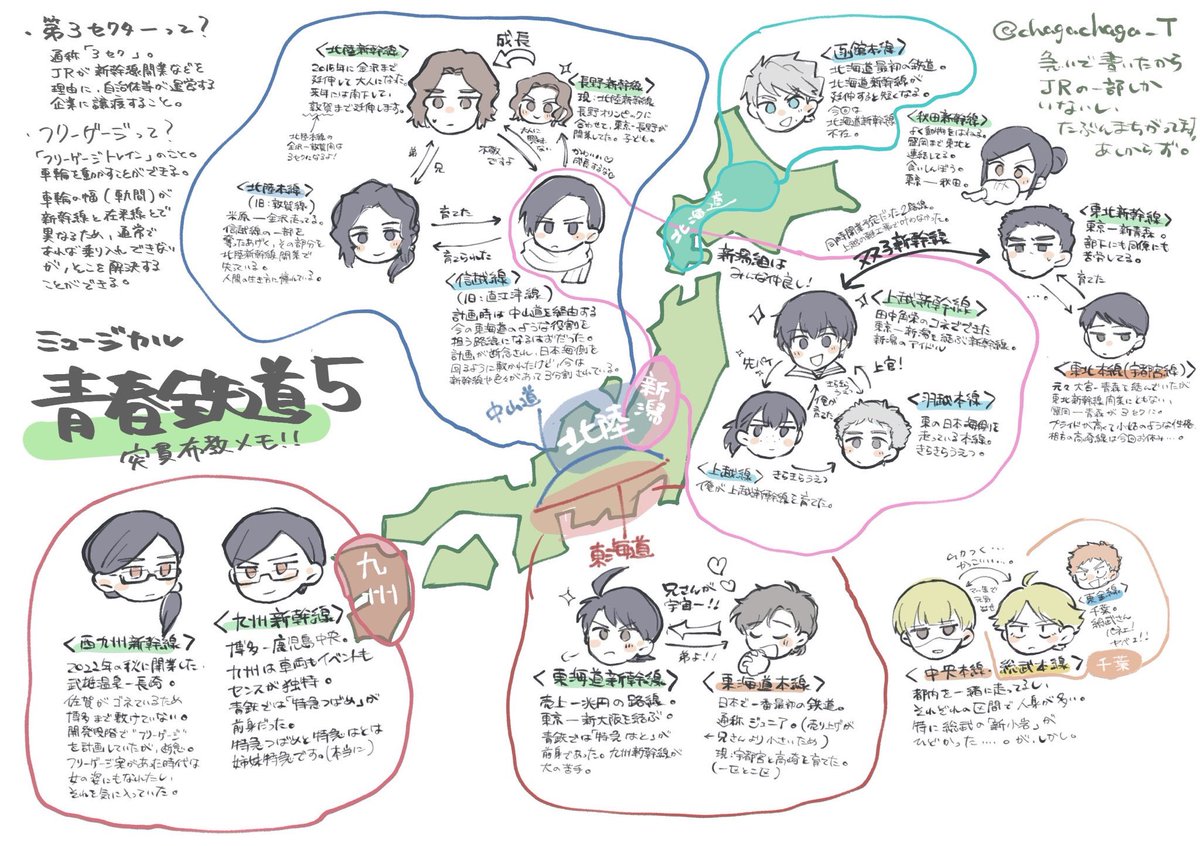 ・第3セクターって?
通称「3セク」。
JRが新幹線開業などを
理由に、自治体等が運営する
企業に譲渡すること。
・フリーゲージって?
「フリーゲージトレイン」のこと。
車輪を動かすことができる。
車輪の幅(軌間)が
新幹線と在来線とで
異なるため、通常で
あれば乗り入れできない
が、そこを解決する
ことができる。
ミュージカル
青春鉄道5
突貫布教メモ!!
<北陸新幹線>
2015年に金沢まで
延伸して大人になった。
来年には南下して、
敦賀まで延伸します。
北陸本線の
金沢ー敦賀間は
3セクになるよ!
成長
<長野新幹線>
現・北陸新幹線
長野オリンピックに
合わせて、東京ー長野が
開業してた。子ども。
弟
兄
不敬
ですよ
大人に
興味は
ない
かわいい
成長するな
<北陸本線>
(旧:敦賀線)
米原ー金沢走ってる。
信越線の一部を
北陸新幹線開業で
失っている。
育てた
育てられた
<信越線>
(旧:直江津線)
計画時は中山道を経由する
今の東海道のような役割を
担う路線になるはずだった。
計画が断念され、日本海側を
回るように敷かれたけど、今は
新幹線や色々があって3分割されている。
<函館本線>
北海道最初の鉄道。
北海道新幹線が
延伸すると短くなる。
今回は
北海道新幹線
不在。
@chagachaga_T
急いで書いたから
JRの一部しか
いないし、
たぶんまちがってる
あしからず。
<秋田新幹線>
盛岡まで東北と
連結してる。
食いしんぼう。
東京ー秋田。
<東北新幹線>
東京ー新青森。
部下にも同僚にも
苦労してる。
育てた
…。
<東北本線(宇都宮線)>
元々大宮ー青森を結んでいたが
東北新幹線開業にともない、
盛岡ー青森が3セクに。
プライドが高くて小姑のような性格
相方の高崎線は今回お休み…。
北海道
同時開業予定だった2路線。
双子新幹線
新潟組は
みんな仲良し!
<上越新幹線>
田中角栄のコネでできた
東京ー新潟を結ぶ新幹線。
新潟のアイドル
先パイ
上官!
俺が
育てた
きらきら
うえつ
<羽越本線>
東の日本海側を
走っている本線。
きらきらうえつ。
<上越線>
きらきらうえつ
俺が上越新幹線を育てた。
中山道
北陸
新潟
東海道
九州
<西九州新幹線>
2022年の秋に開業した、
武雄温泉ー長崎。
佐賀がゴネているため
博多まで敷けていない。
開発段階で"フリーゲージ"
を計画していたが、断念。
フリーゲージ案があった時代は
女の姿にもなれたらしい
それを気に入っていた。
<九州新幹線>
博多ー鹿児島中央。
九州は車両もイベントも
センスが独特。
青鉄では「特急つばめ」が
前身だった。
特急つばめと特急はとは
姉妹特急です。(本当に)
兄さんが
宇宙一!!
弟よ!!
<東海道新幹線>
売上一兆円の路線。
東京ー新大阪を結ぶ。
青鉄では「特急はと」が
前身であった。九州新幹線が
大の苦手。
<東海道本線>
日本で一番最初の鉄道。
通称ジュニア。(売り上げが
兄さんより小さいため)
現・宇都宮と高崎を育てた。
むかつく…
かっこいい…。
<東金線>
千葉。
総武さん
パネェ!
ヤベェ!!
<中央本線・総武本線>
千葉
都内を一緒に走ってるし、
それぞれの区間で人身が多い。
特に総武の「新小岩」が
ひどかった……。が、しかし。